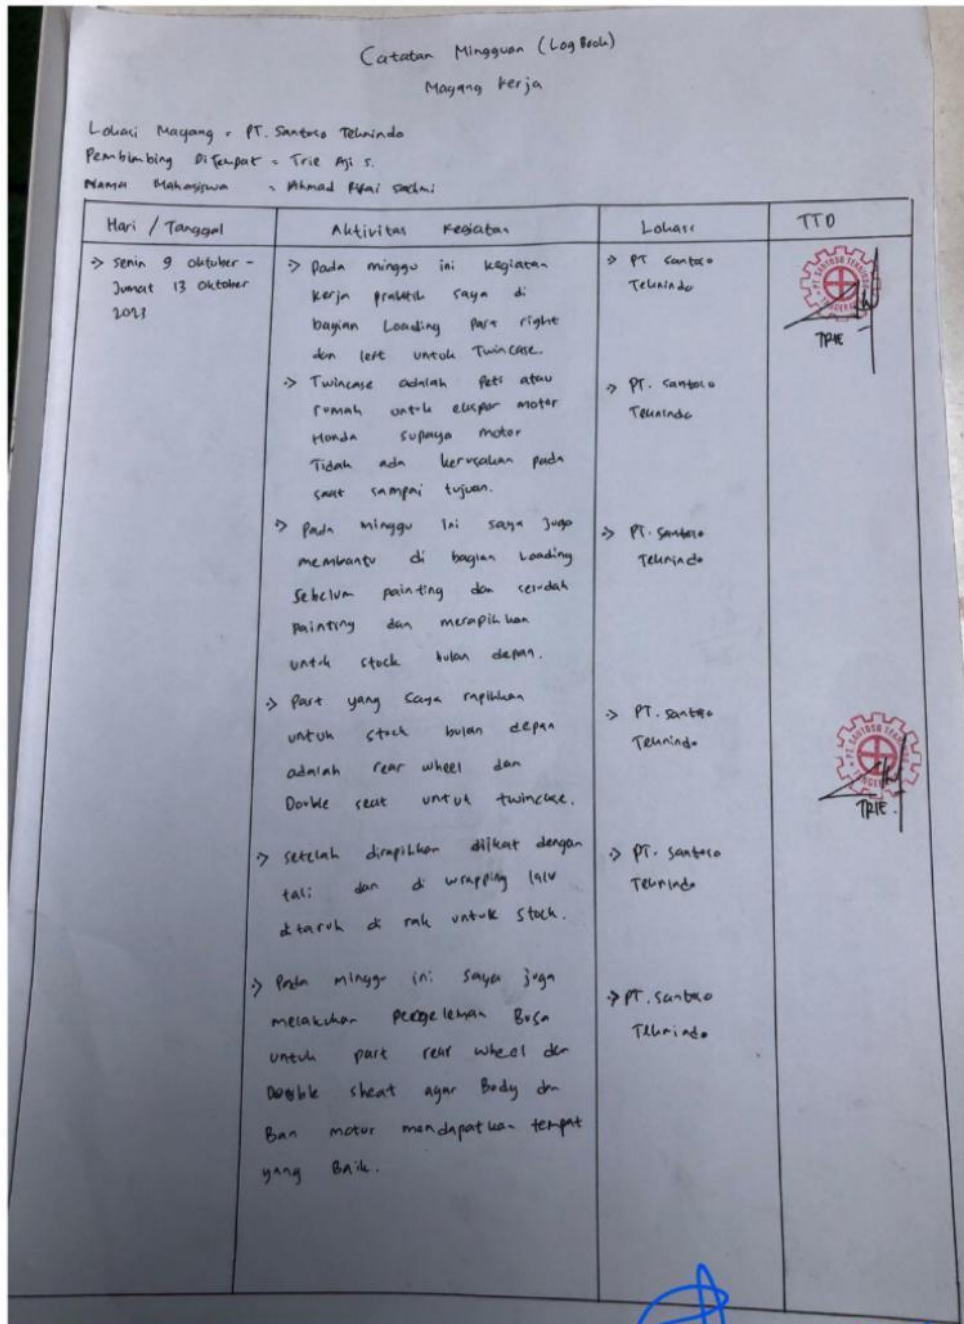 Catatan Mingguan (Log Book)
Magang Kerja
Lokasi Magang = PT. Santoso Teknindo
Pembimbing Ditempat = Trie Aji S.
Nama Mahasiswa = Ahmad Rifai
Hari / Tanggal
Aktivitas Kegiatan
Lokasi
TTD
-> Senin 9 oktober -
Jumat 13 Oktober
2023
-> Pada minggu ini kegiatan
kerja praktik saya di
bagian Loading Part right
dan left untuk Twincase.
-> PT Santoso
Teknindo
PT. SANTOSO TEKNINDO
TANGERANG
TRIE
-> Twincase adalah Peti atau
rumah untuk ekspor motor
Honda supaya motor
Tidak ada kerusakan pada
saat sampai tujuan.
-> PT. Santoso
Teknindo
-> Pada minggu ini saya juga
membantu di bagian Loading
Sebelum painting dan sesudah
Painting dan merapihkan
untuk stock bulan depan.
-> PT. Santoso
Teknindo
-> Part yang saya rapihkan
untuk stock bulan depan
adalah rear wheel dan
Double seat untuk twincase.
-> PT. Santoso
Teknindo
PT. SANTOSO TEKNINDO
TANGERANG
TRIE.
-> setelah dirapihkan diikat dengan
tali dan di wrapping lalu
ditaruh di rak untuk stock.
-> PT. Santoso
Teknindo
-> Pada minggu ini saya juga
melakukan Pengeleman Busa
untuk part rear wheel dan
Double sheat agar Body dan
Ban motor mendapatkan tempat
yang Baik.
-> PT. Santoso
Teknindo